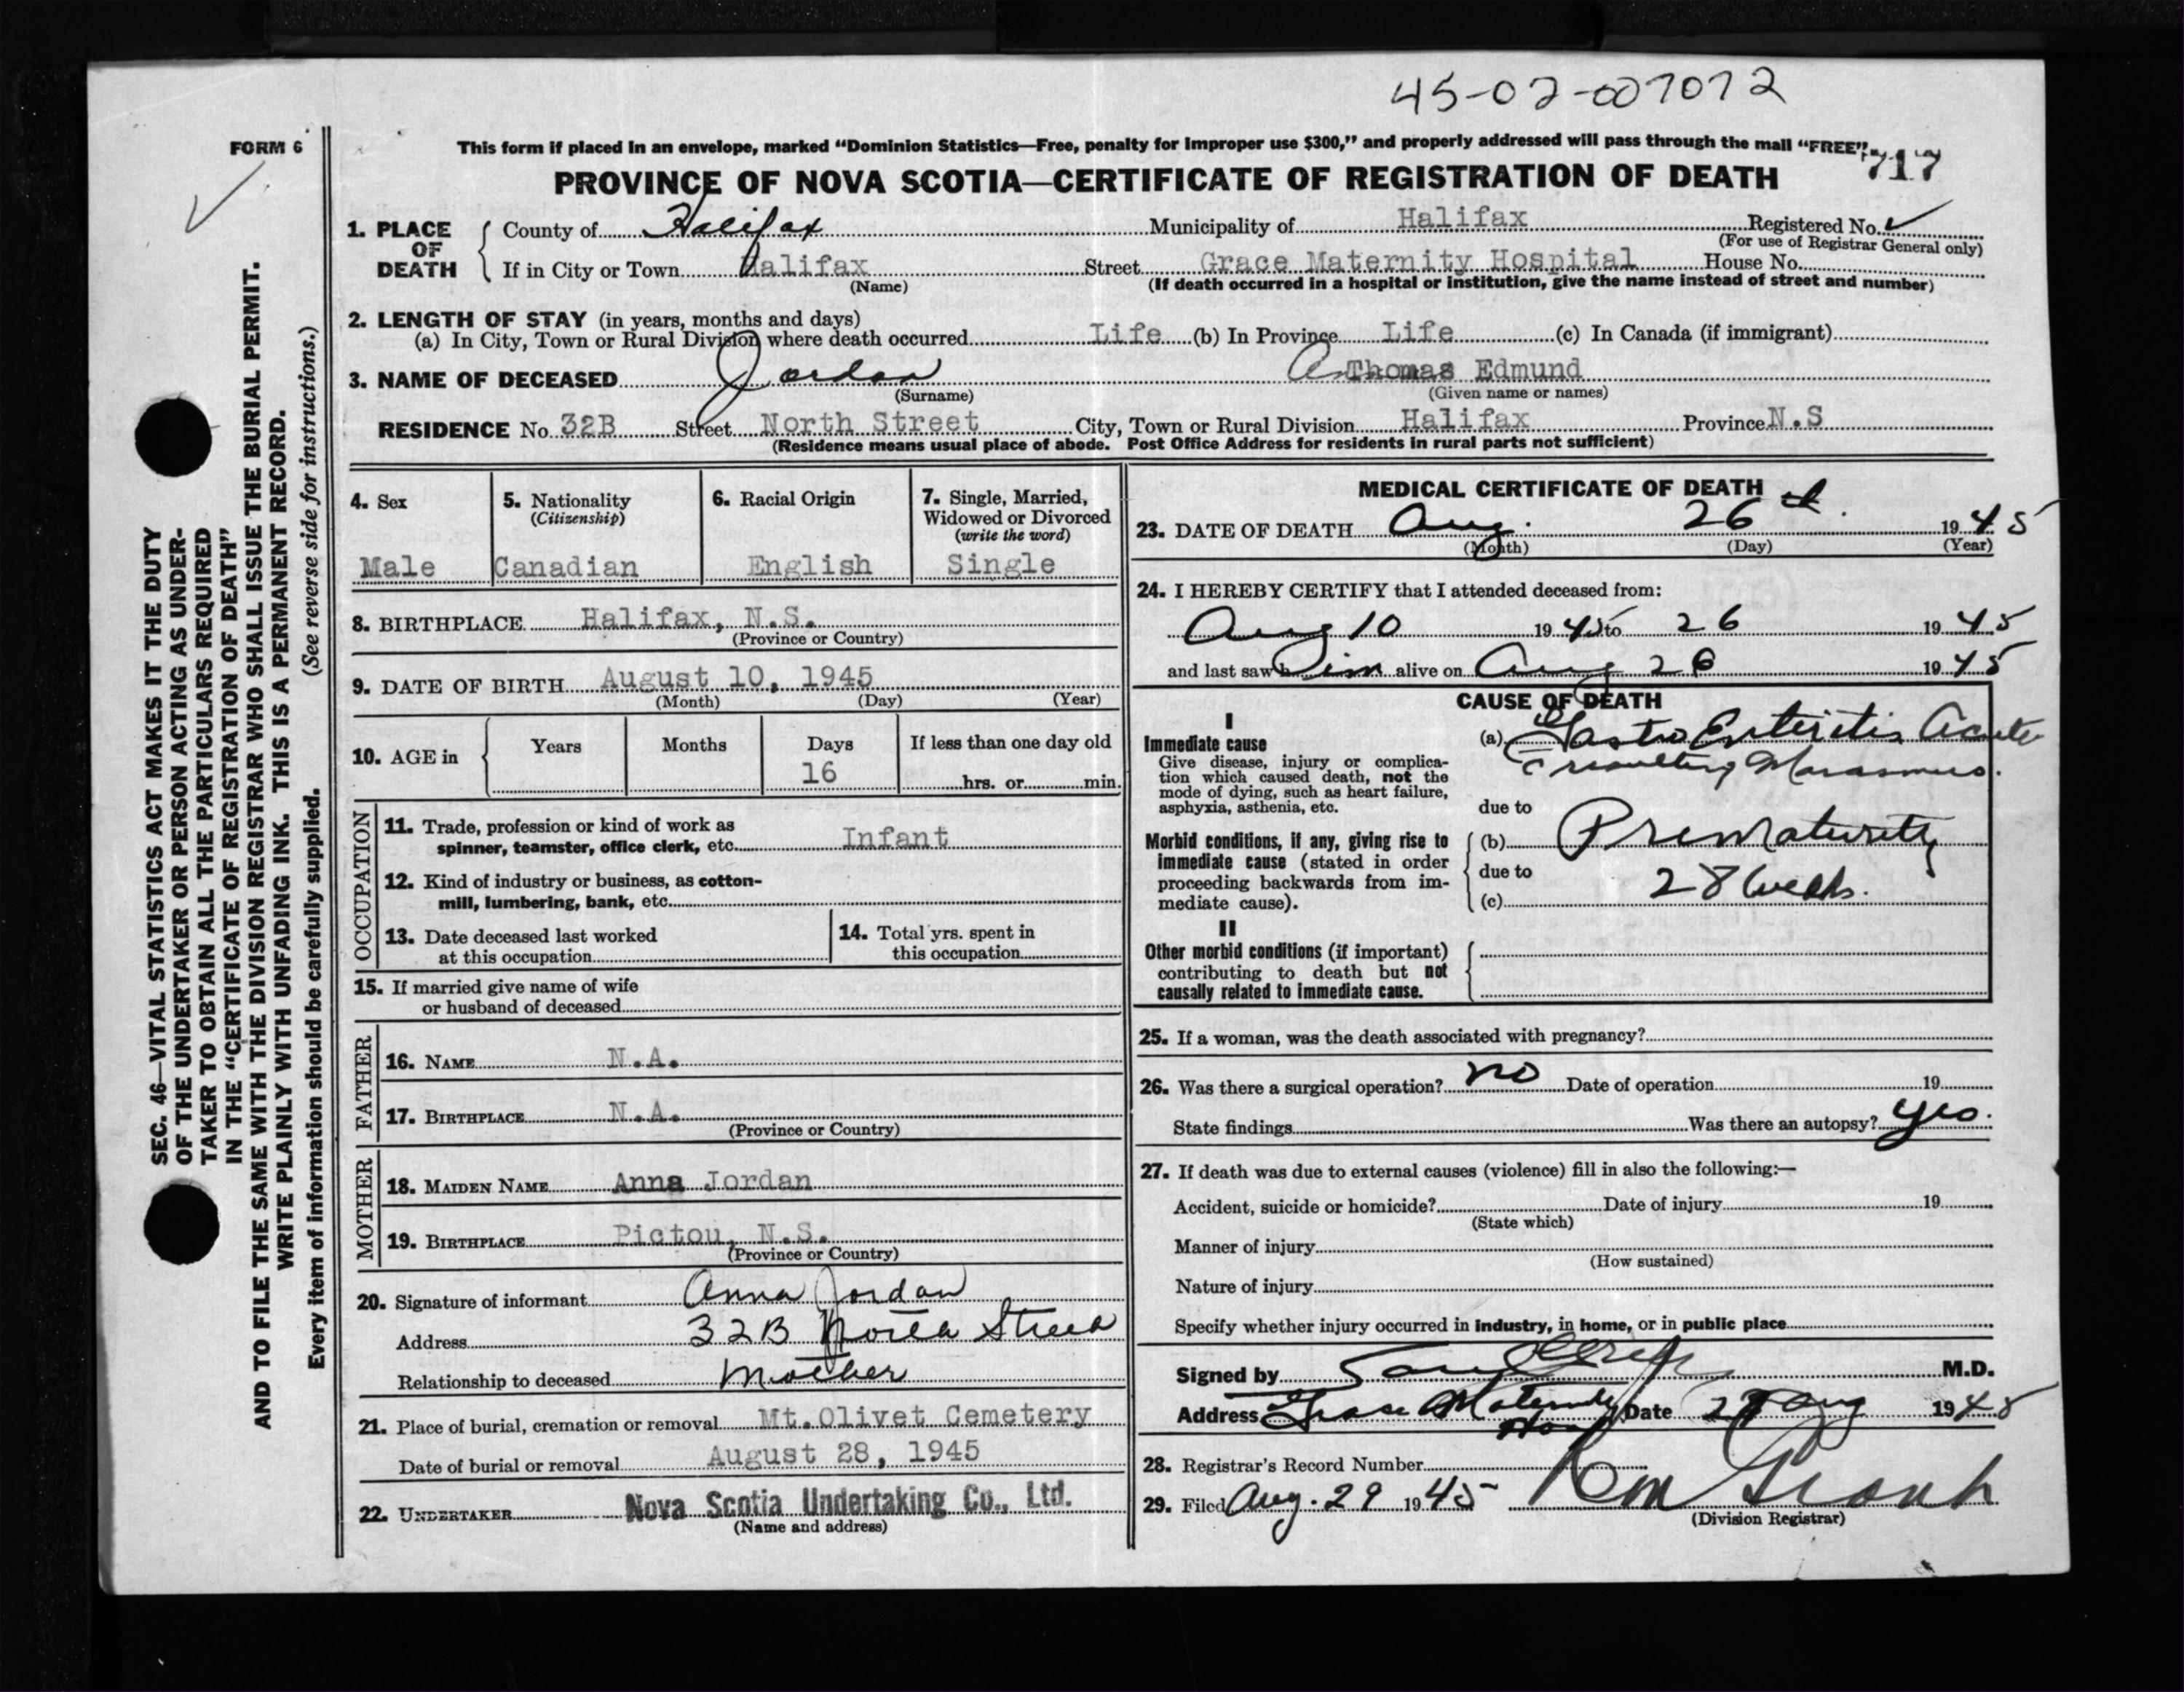 45-02-007072
FORM 6
This form if placed in an envelope, marked “Dominion Statistics—Free, penalty for improper use $300,” and properly addressed will pass through the mail “FREE”.
717
PROVINCE OF NOVA SCOTIA—CERTIFICATE OF REGISTRATION OF DEATH
1. PLACE OF DEATH County of Halifax Municipality of Halifax Registered No.
(For use of Registrar General only)
If in City or Town Halifax Street Grace Maternity Hospital House No.
(Name) (If death occurred in a hospital or institution, give the name instead of street and number)
2. LENGTH OF STAY (in years, months and days)
(a) In City, Town or Rural Division where death occurred Life (b) In Province Life (c) In Canada (if immigrant)
3. NAME OF DECEASED Jordan Thomas Edmund
(Surname) (Given name or names)
RESIDENCE No. 32B Street North Street City, Town or Rural Division Halifax Province N.S
(Residence means usual place of abode. Post Office Address for residents in rural parts not sufficient)
4. Sex
Male
5. Nationality
(Citizenship)
Canadian
6. Racial Origin
English
7. Single, Married,
Widowed or Divorced
(write the word)
Single
8. BIRTHPLACE Halifax, N.S.
(Province or Country)
9. DATE OF BIRTH August 10, 1945
(Month) (Day) (Year)
10. AGE in Years Months Days If less than one day old
16 hrs. or min.
OCCUPATION
11. Trade, profession or kind of work as
spinner, teamster, office clerk, etc. Infant
12. Kind of industry or business, as cotton-
mill, lumbering, bank, etc.
13. Date deceased last worked
at this occupation
14. Total yrs. spent in
this occupation
15. If married give name of wife
or husband of deceased
FATHER
16. NAME N.A.
17. BIRTHPLACE N.A.
(Province or Country)
MOTHER
18. MAIDEN NAME Anna Jordan
19. BIRTHPLACE Pictou, N.S.
(Province or Country)
20. Signature of informant Anna Jordan
Address 32B North Street
Relationship to deceased Mother
21. Place of burial, cremation or removal Mt. Olivet Cemetery
Date of burial or removal August 28, 1945
22. UNDERTAKER Nova Scotia Undertaking Co., Ltd.
(Name and address)
MEDICAL CERTIFICATE OF DEATH
23. DATE OF DEATH Aug. 26th. 1945
(Month) (Day) (Year)
24. I HEREBY CERTIFY that I attended deceased from:
Aug 10 1945 to 26 1945
and last saw him alive on Aug 26 1945
CAUSE OF DEATH
I
Immediate cause
Give disease, injury or complica-
tion which caused death, not the
mode of dying, such as heart failure,
asphyxia, asthenia, etc.
(a) Gastro Enteritis Acute
resulting Marasmus.
due to
Morbid conditions, if any, giving rise to
immediate cause (stated in order
proceeding backwards from im-
mediate cause).
(b) Prematurity
due to
(c) 28 Weeks.
II
Other morbid conditions (if important)
contributing to death but not
causally related to immediate cause.
25. If a woman, was the death associated with pregnancy?
26. Was there a surgical operation? no Date of operation 19
State findings Was there an autopsy? yes.
27. If death was due to external causes (violence) fill in also the following:—
Accident, suicide or homicide? Date of injury 19
(State which)
Manner of injury
(How sustained)
Nature of injury
Specify whether injury occurred in industry, in home, or in public place
Signed by M.D.
Address Grace Maternity Hosp Date Aug 1945
28. Registrar's Record Number
29. Filed Aug. 29 1945
(Division Registrar)
SEC. 46—VITAL STATISTICS ACT MAKES IT THE DUTY
OF THE UNDERTAKER OR PERSON ACTING AS UNDER-
TAKER TO OBTAIN ALL THE PARTICULARS REQUIRED
IN THE “CERTIFICATE OF REGISTRATION OF DEATH”
AND TO FILE THE SAME WITH THE DIVISION REGISTRAR WHO SHALL ISSUE THE BURIAL PERMIT.
WRITE PLAINLY WITH UNFADING INK. THIS IS A PERMANENT RECORD.
Every item of information should be carefully supplied. (See reverse side for instructions.)